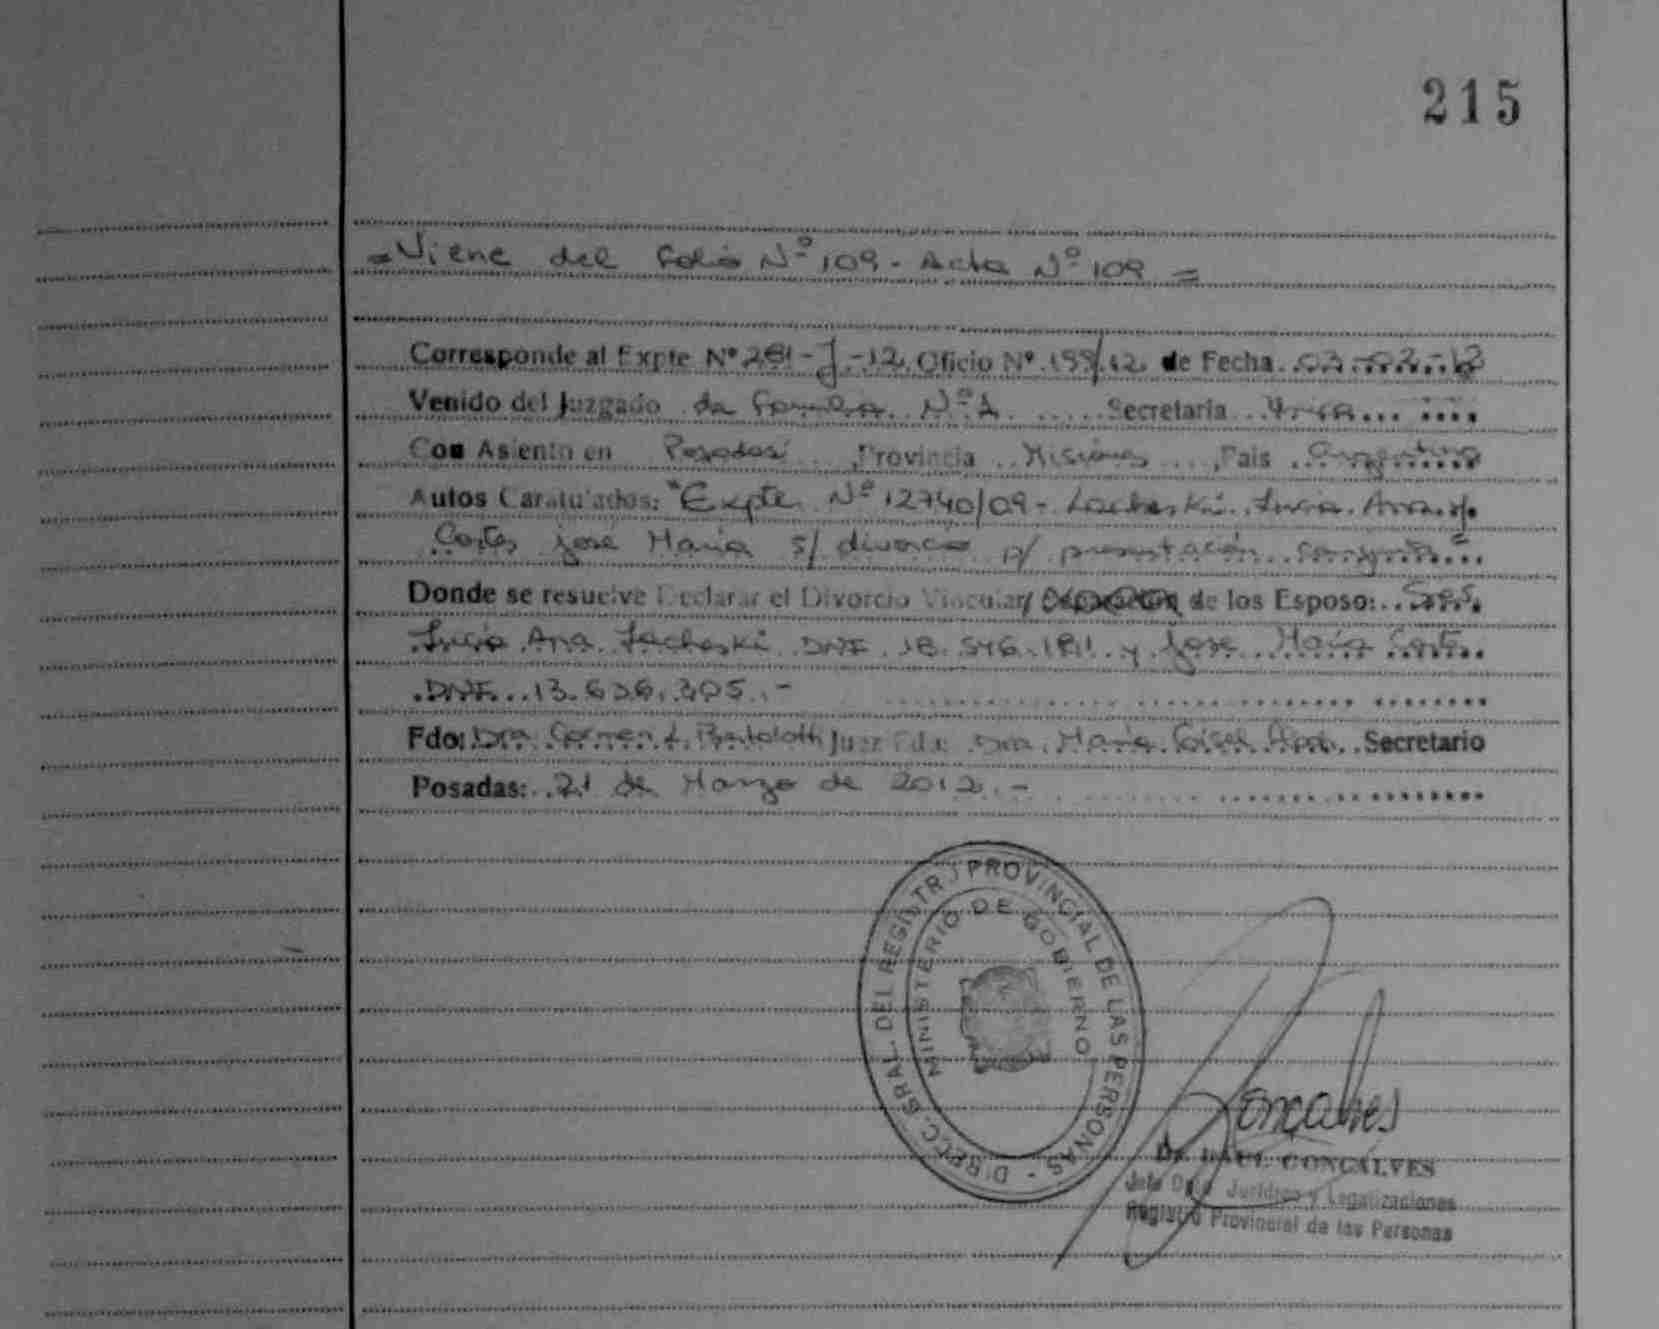 215
= Viene del Folio Nº 109 - Acta Nº 109 =
Corresponde al Expte Nº 281-J-12 Oficio Nº 199/12 de Fecha 02-03-12
Venido del Juzgado de Familia Nº 1 Secretaria Unica
Con Asiento en Posadas Provincia Misiones, Pais Argentina
Autos Caratulados: "Expte Nº 12740/09 - Lacheski Lucia Ana y/o
Cortes Jose Maria s/ divorcio p/ presentación conjunta"
Donde se resuelve Declarar el Divorcio Vincular/ de los Esposo: Sres.
Lucia Ana Lacheski DNI 18.546.1811 y Jose Maria Cortes
DNI 13.636.305.-
Fdo: Dra. Carmen L. Bertolotti Juez Fdo: Dra. Maria Secretario
Posadas: 21 de Marzo de 2012.-
DIRECC. GRAL. DEL REGISTRO PROVINCIAL DE LAS PERSONAS -
MINISTERIO DE GOBIERNO
Goncalves
Dr. RAUL GONCALVES
Jefe Dpto. Juridico y Legalizaciones
Registro Provincial de las Personas